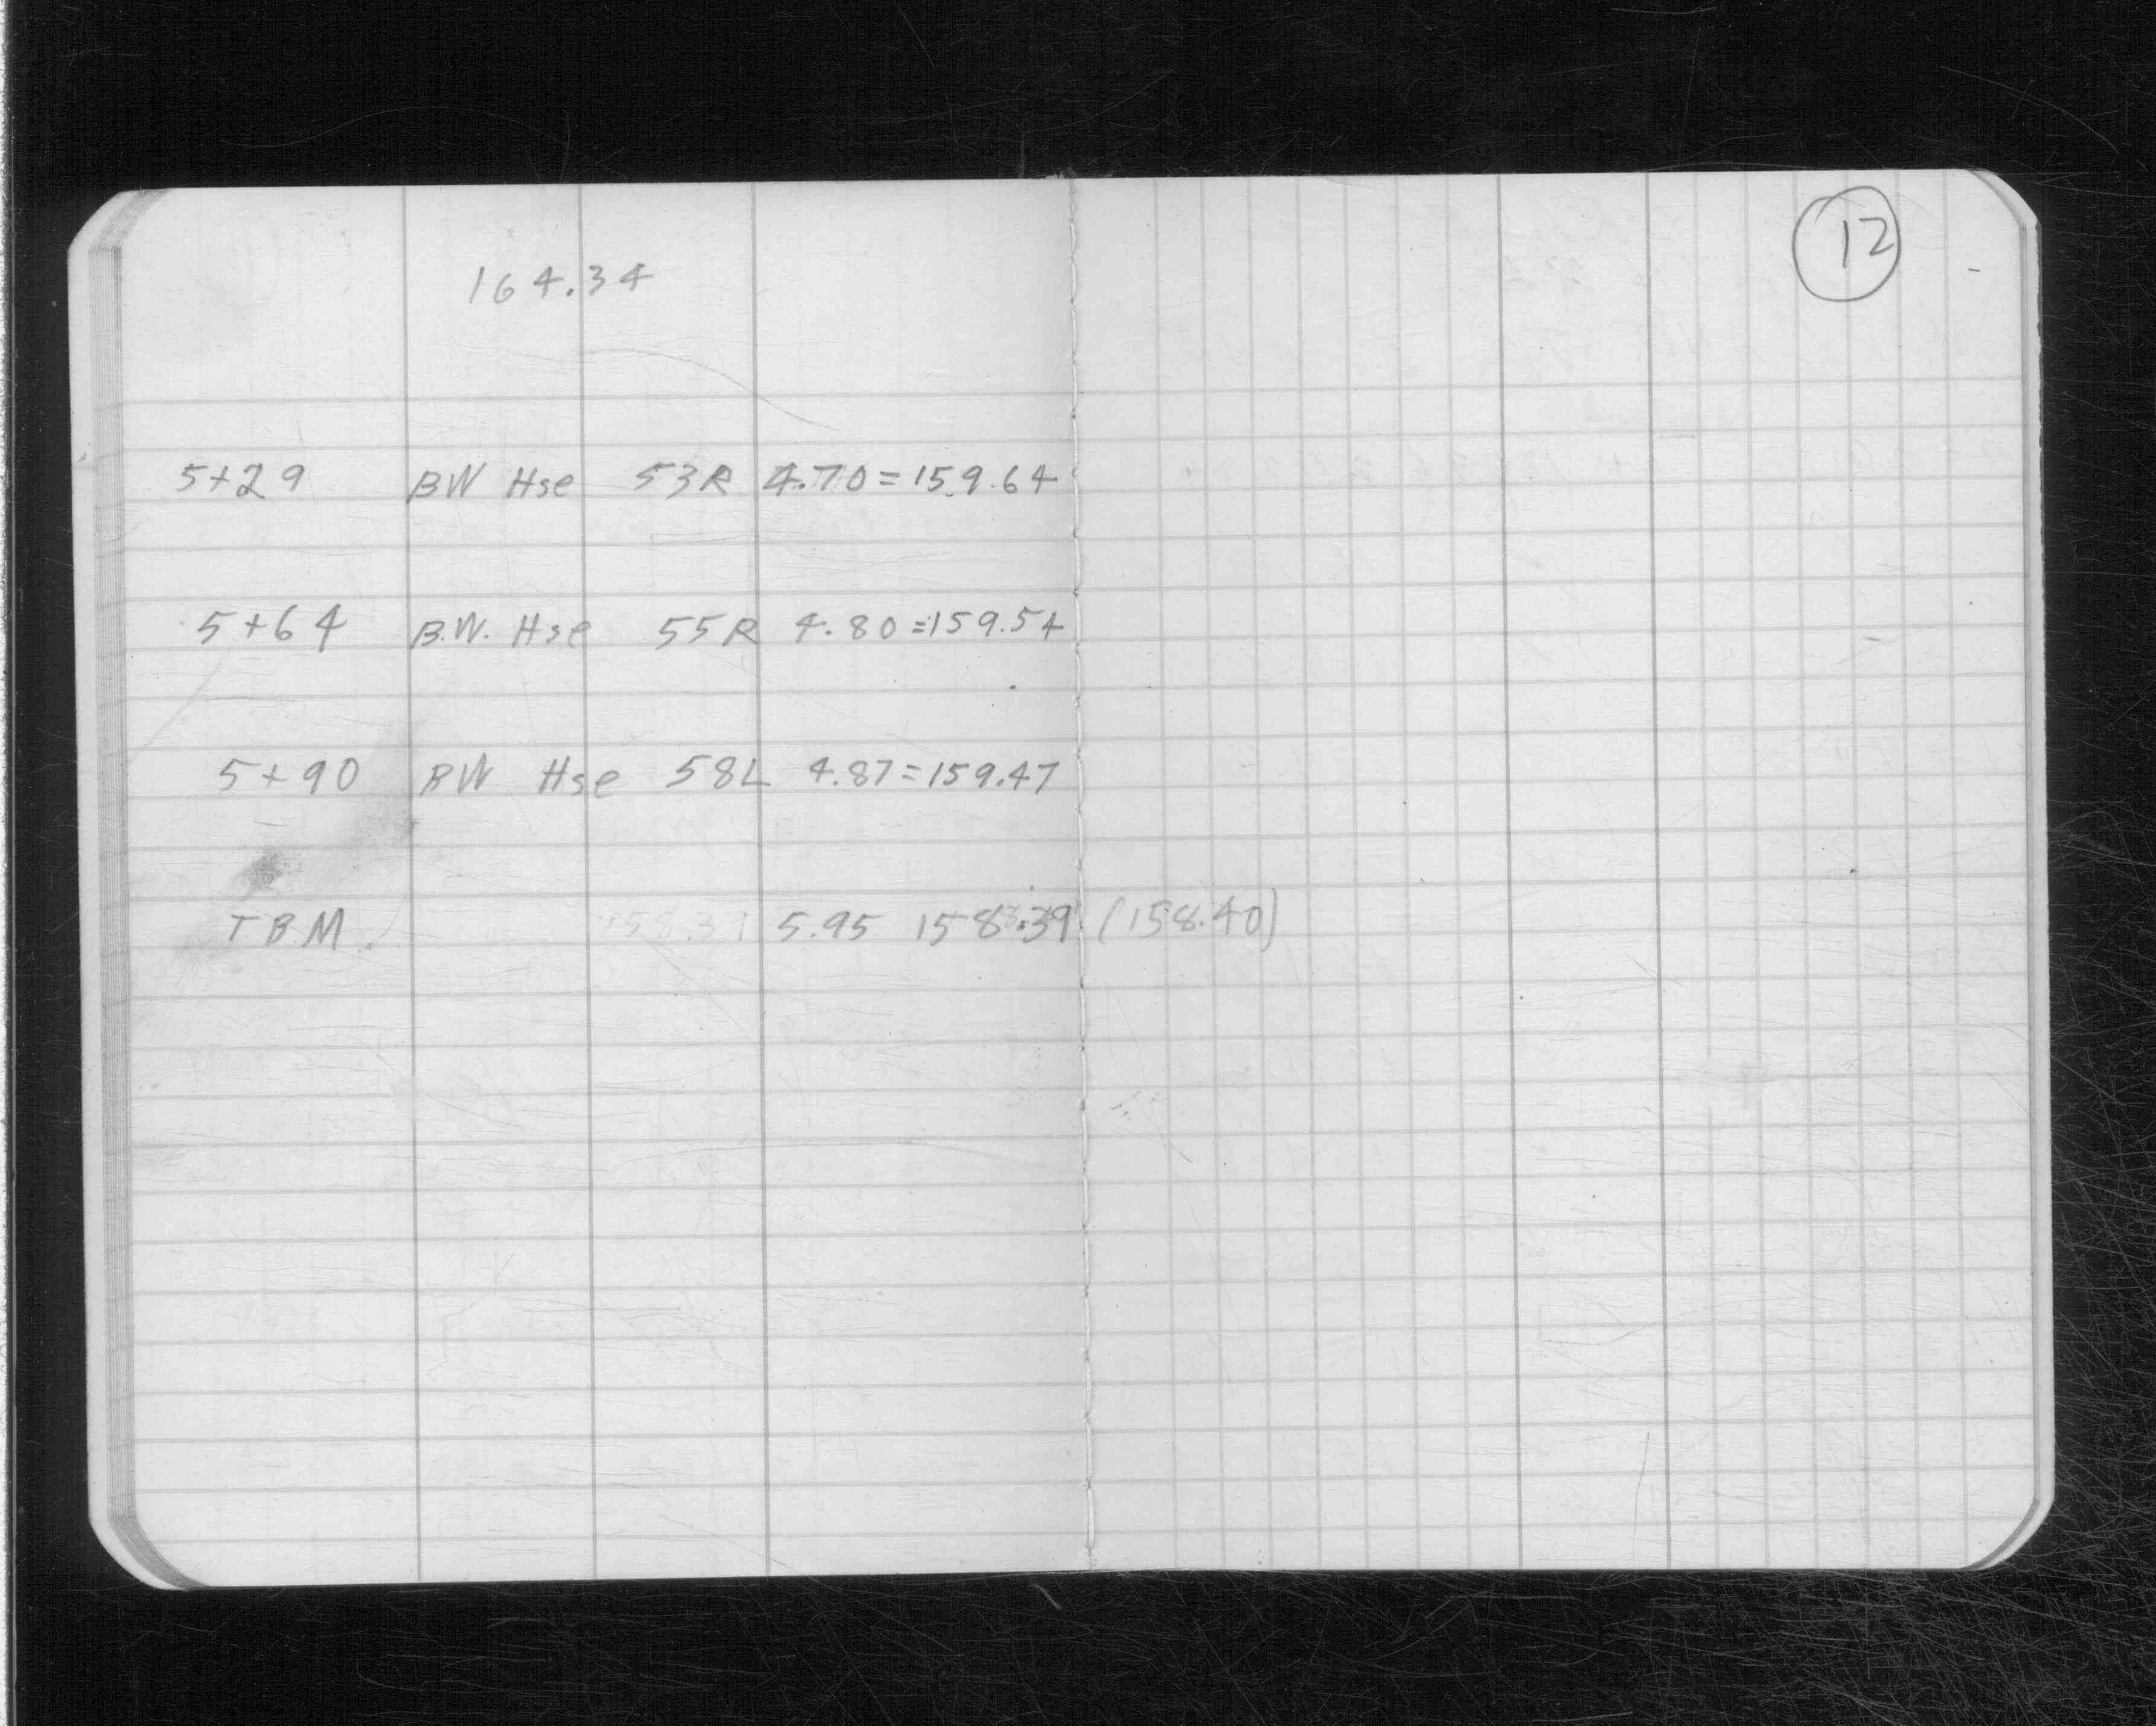 12
164.34
5+29 BW Hse 53R 4.70=159.64
5+64 B.W. Hse 55R 4.80=159.54
5+90 BW Hse 58L 4.87=159.47
TBM 5.95 158.39 (158.40)